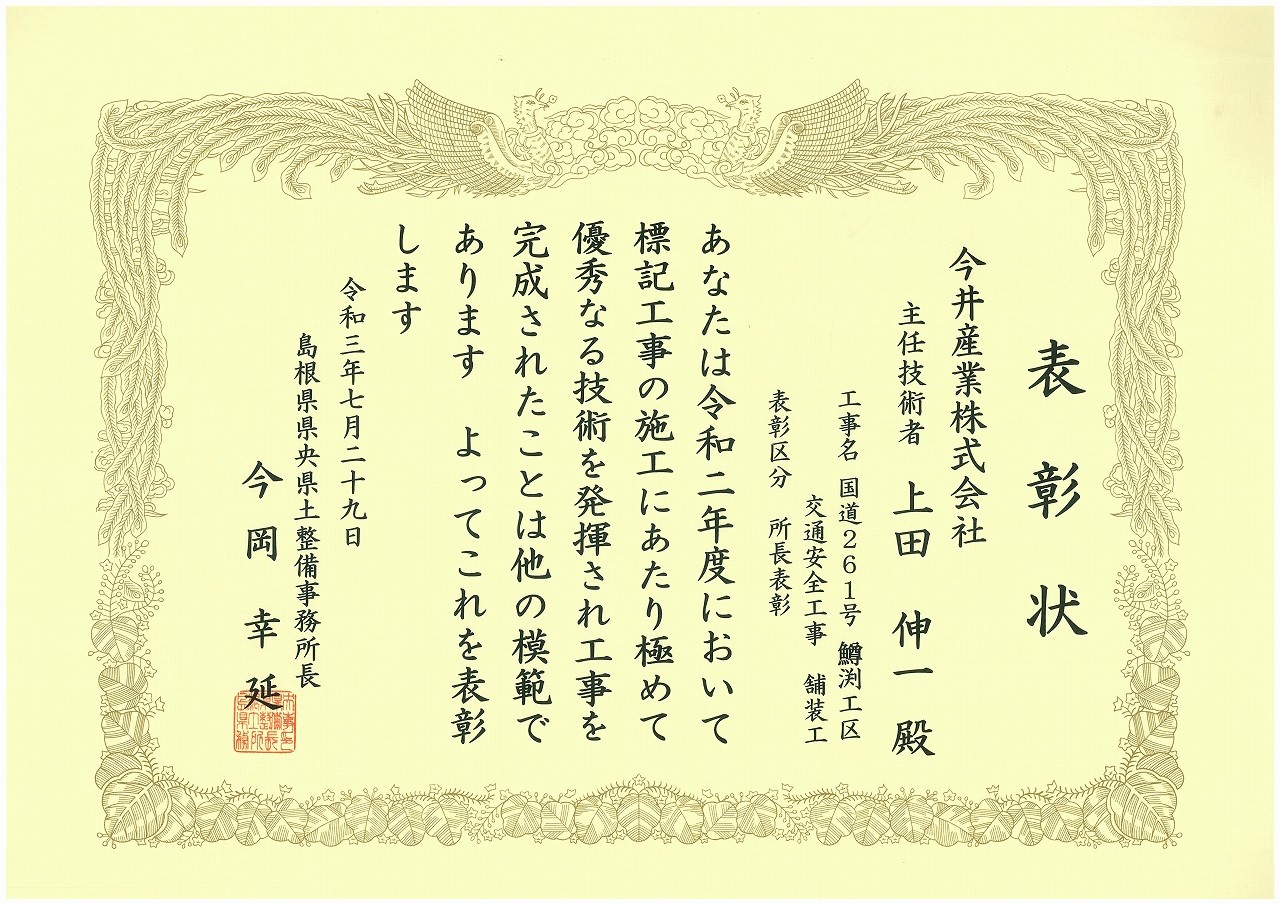 表彰状
今井産業株式会社
主任技術者 上田 伸一 殿
工事名 国道261号 鱒渕工区
交通安全工事 舗装工
表彰区分 所長表彰
あなたは令和二年度において
標記工事の施工にあたり極めて
優秀なる技術を発揮され工事を
完成されたことは他の模範で
あります よってこれを表彰
します
令和三年七月二十九日
島根県県央県土整備事務所長
今岡幸延